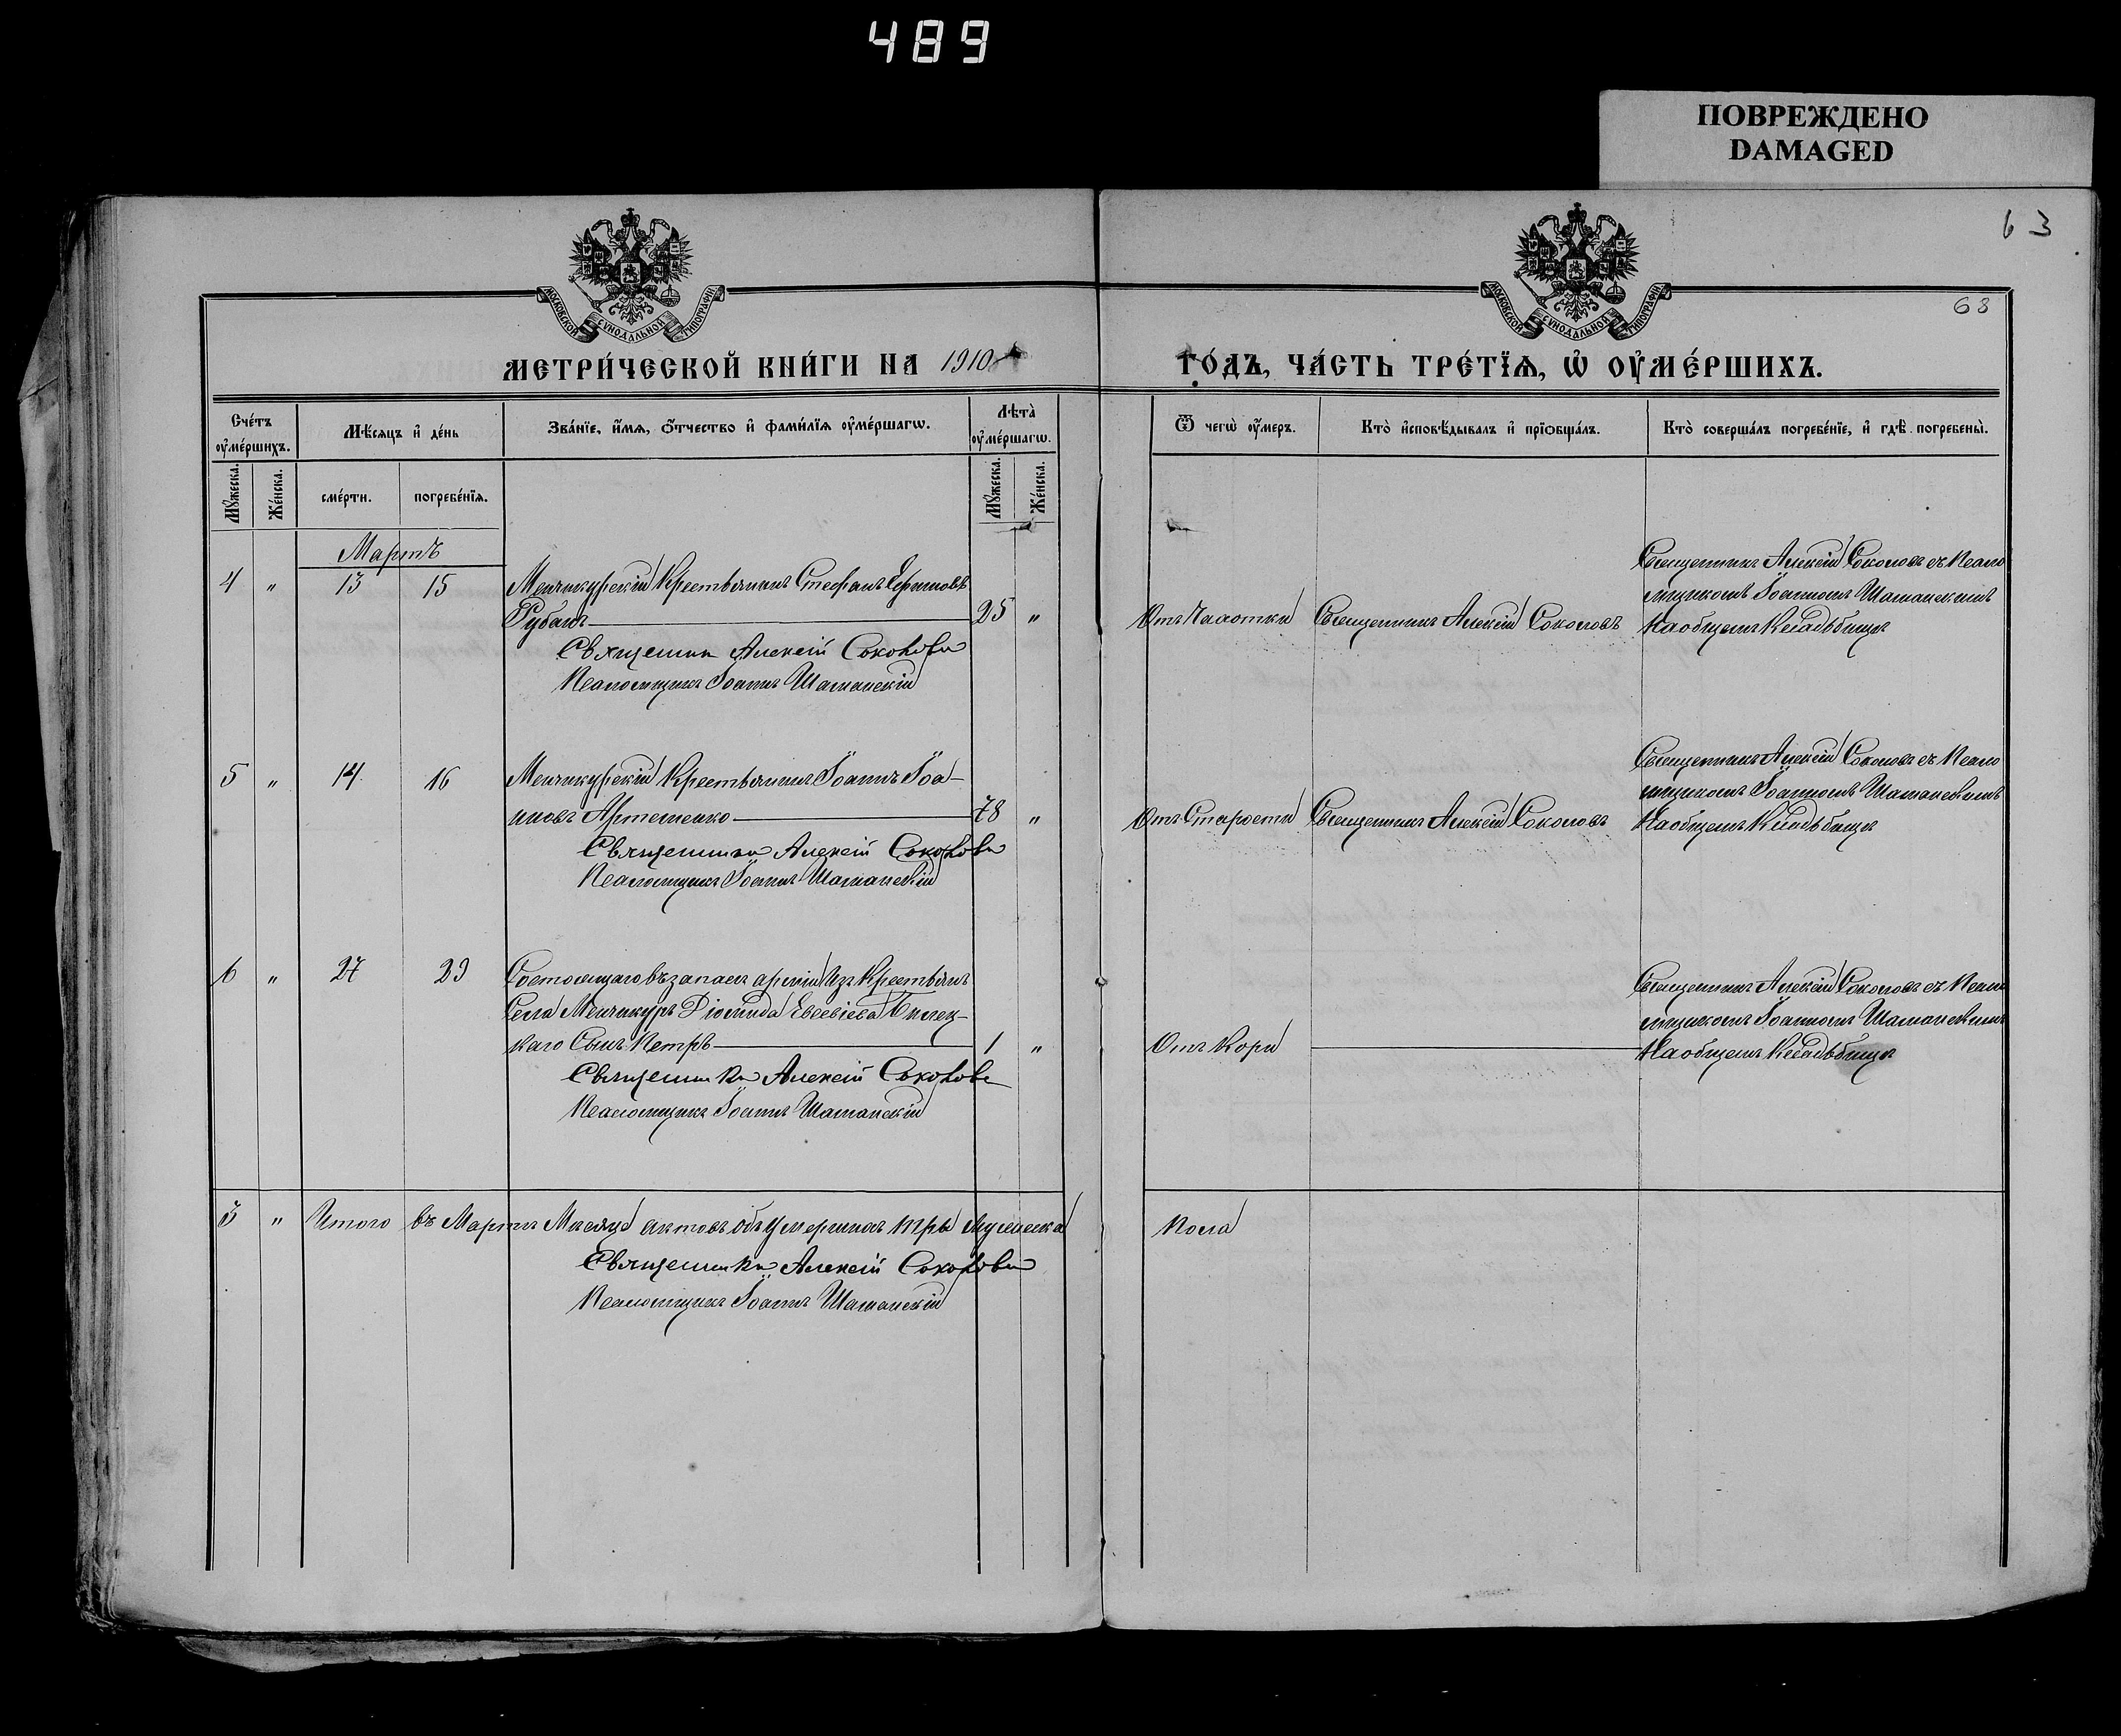 489
ПОВРЕЖДЕНО
DAMAGED
63
63
МОСКОВСКОЙ СѴНОДАЛЬНОЙ ТИПОГРАФІИ
МОСКОВСКОЙ СѴНОДАЛЬНОЙ ТИПОГРАФІИ
МЕТРИ́ЧЕСКОЙ КНИ́ГИ НА 1910
ГО́ДЪ, ЧА́СТЬ ТРЕ́ТЇѦ, Ѡ ОУ҆МЕ́РШИХЪ.
Сче́тъ оу҆ме́ршихъ.
Мѣ́сяцъ и҆ де́нь
Зва́нїе, и҆́мѧ, ѻ҆́тчество и҆ фами́лїѧ оу҆ме́ршагѡ.
Лѣ́та оу҆ме́ршагѡ.
Ѿ чегѡ̀ оу҆́меръ.
Кто̀ и҆сповѣ́дывалъ и҆ прїѡбща́лъ.
Кто̀ соверша́лъ погребе́нїе, и҆ гдѣ̀ погребены̀.
Мꙋ́жеска.
Же́нска.
сме́рти.
погребе́нїѧ.
Мꙋ́жеска.
Же́нска.
Мартъ
4 " 13 15 Менчикурскій Крестьянинъ Стефанъ Ефимовъ
Рубанъ 25 "
Священникъ Алексій Соколовъ
Псаломщикъ Іоаннъ Шаманскій
Отъ Чахотки
Священникъ Алексій Соколовъ
Священникъ Алексій Соколовъ съ Псало
мщикомъ Іоанномъ Шаманскимъ
На общемъ Кладбищѣ
5 " 14 16 Менчикурскій Крестьянинъ Іоаннъ Іоа-
нновъ Артеменко 78 "
Священникъ Алексій Соколовъ
Псаломщикъ Іоаннъ Шаманскій
Отъ Старости
Священникъ Алексій Соколовъ
Священникъ Алексій Соколовъ съ Псало
мщикомъ Іоанномъ Шаманскимъ
На общемъ Кладбищѣ
6 " 27 29 Состоящаго въ запасѣ арміи Изъ Крестьянъ
Села Менчикуръ Діомида Евсевіева Билец-
каго Сынъ Петръ 1 "
Священникъ Алексій Соколовъ
Псаломщикъ Іоаннъ Шаманскій
Отъ Кори
Священникъ Алексій Соколовъ съ Псало
мщикомъ Іоанномъ Шаманскимъ
На общемъ Кладбищѣ
3 " Итого въ Мартѣ Мѣсяцѣ актовъ объ умершихъ три мужеска
Пола
Священникъ Алексій Соколовъ
Псаломщикъ Іоаннъ Шаманскій